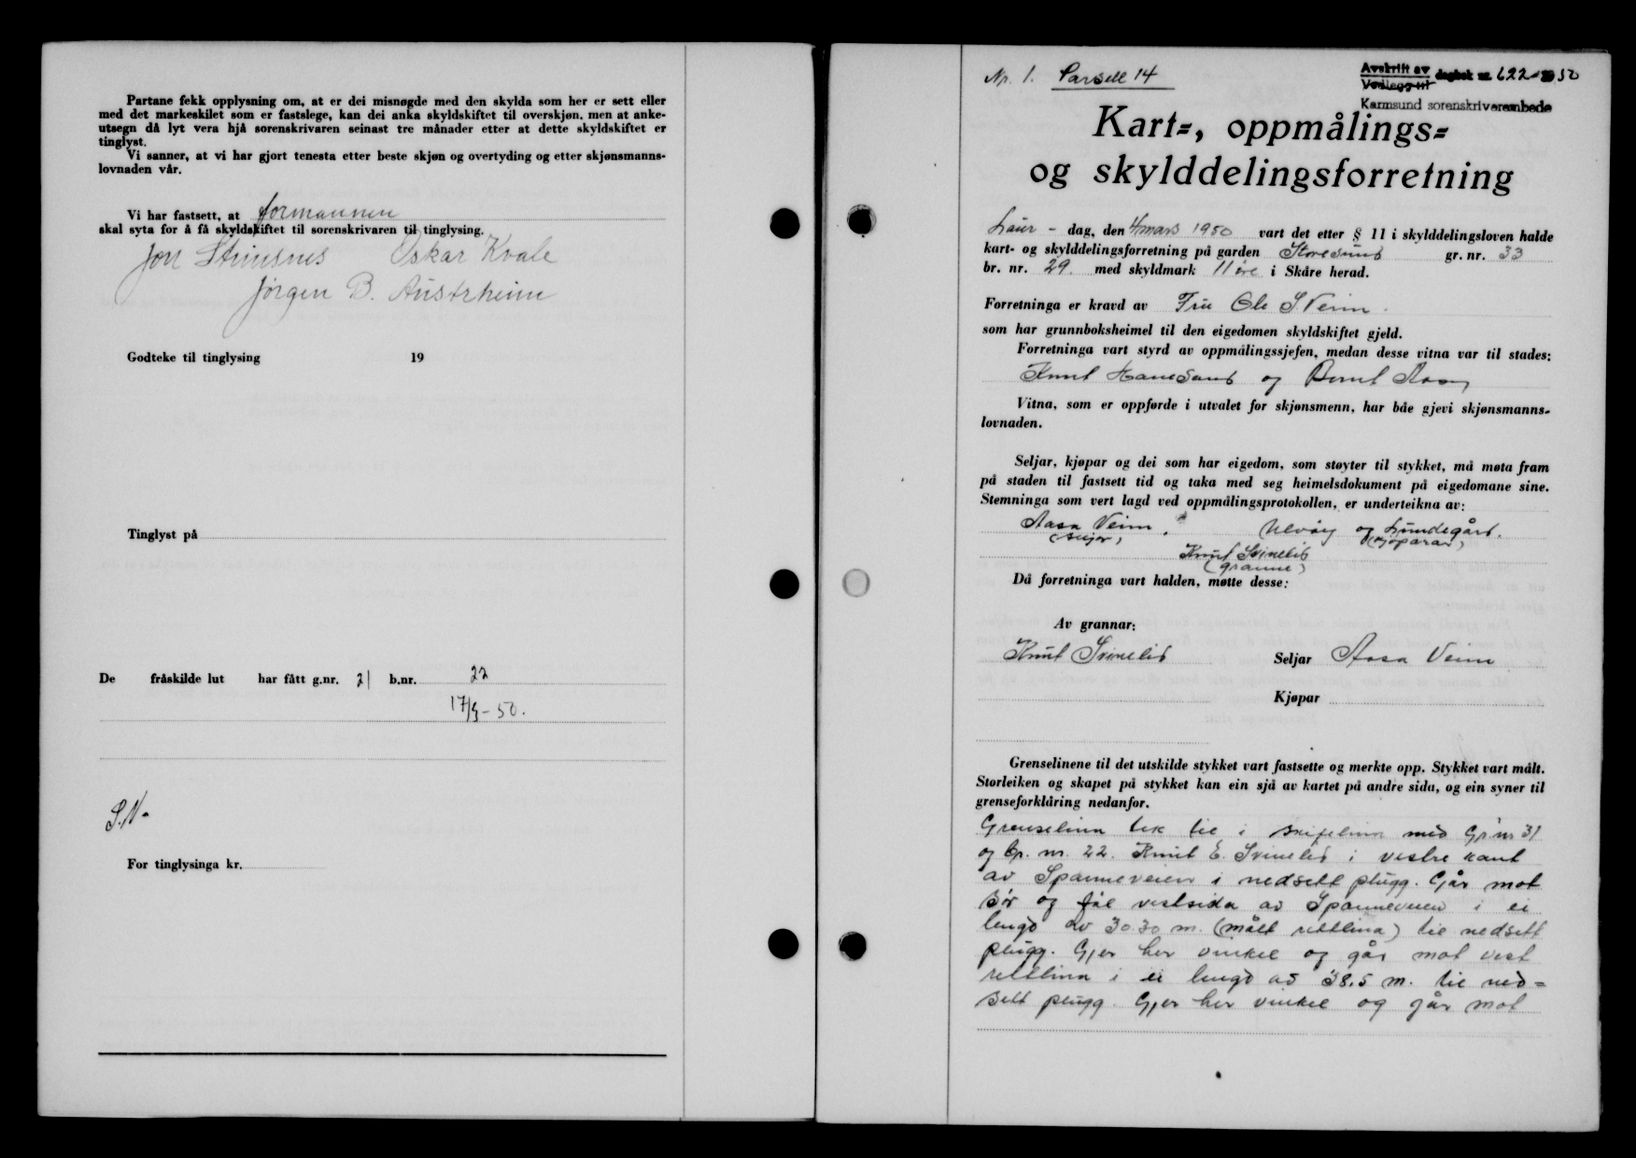 Partane fekk opplysning om, at er dei misnøgde med den skylda som her er sett eller
med det markeskilet som er fastslege, kan dei anka skyldskiftet til overskjøn, men at anke-
utsegn då lyt vera hjå sorenskrivaren seinast tre månader etter at dette skyldskiftet er
tinglyst.
Vi sanner, at vi har gjort tenesta etter beste skjøn og overtyding og etter skjønsmanns-
lovnaden vår.
Vi har fastsett, at formannen
skal syta for å få skyldskiftet til sorenskrivaren til tinglysing.
Jon Stuesnes Oskar Kvale
Jørgen B. Austrheim
Godteke til tinglysing 19
Tinglyst på
De fråskilde lut har fått g.nr. 21 b.nr. 22
17/3-50.
S.N.
For tinglysinga kr.
Nr. 1. Parsell 14
Avskrift av
Vedlegg til dagbok nr. 622 1950
Karmsund sorenskriverembede
Kart-, oppmålings-
og skylddelingsforretning
Laur-dag, den 4 mars 1950 vart det etter § 11 i skylddelingsloven halde
kart- og skylddelingsforretning på garden Storesund gr. nr. 33
br. nr. 29. med skyldmark 11 øre i Skåre herad.
Forretninga er kravd av Fru Ole S Veim.
som har grunnboksheimel til den eigedomen skyldskiftet gjeld.
Forretninga vart styrd av oppmålingssjefen, medan desse vitna var til stades:
Knut Hanesand og Bernt Aasen
Vitna, som er oppførde i utvalet for skjønsmenn, har både gjevi skjønsmanns-
lovnaden.
Seljar, kjøpar og dei som har eigedom, som støyter til stykket, må møta fram
på staden til fastsett tid og taka med seg heimelsdokument på eigedomane sine.
Stemninga som vert lagd ved oppmålingsprotokollen, er underteikna av:
Aasa Veim. Ulvøy og Lundegård.
(seljar) (kjøparar)
Knut Svinelid
(granne)
Då forretninga vart halden, møtte desse:
Av grannar:
Knut Svinelid Seljar Aasa Veim
Kjøpar
Grenselinene til det utskilde stykket vart fastsette og merkte opp. Stykket vart målt.
Storleiken og skapet på stykket kan ein sjå av kartet på andre sida, og ein syner til
grenseforklåring nedanfor.
Grenselinn tek til i skifelinn med Gr nr 31
og br. nr. 22. Knut E. Svinelid i vestre kant
av Spanneveien i nedsett plugg. Går mot
sør og føl vestsida av Spanneveien i ei
lengd av 30.30 m. (målt rettlina) til nedsett
plugg. Gjer her vinkel og går mot vest
rettlina i ei lengd av 38.5 m. til ned=
sett plugg. Gjer her vinkel og går mot